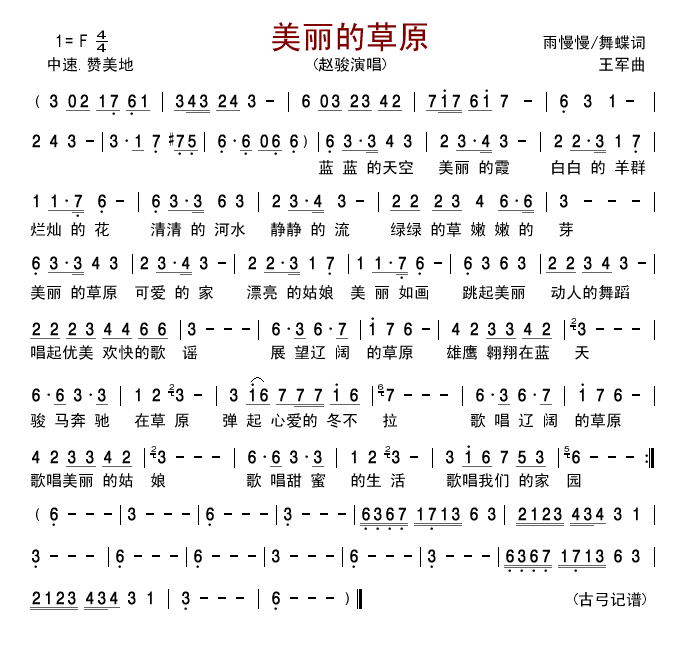 美丽的草原
1= F 4/4
雨慢慢/舞蝶词
中速.赞美地
(赵骏演唱)
王军曲
( 3 02 17 61 | 343 24 3 - | 6 03 23 42 | 717 61 7 - | 6 3 1 - |
2 4 3 - | 3·1 7 #75 | 6·6 06 6 ) | 6 3·3 4 3 | 2 3·4 3 - | 2 2·3 1 7 |
蓝 蓝 的天空 美丽 的霞 白白 的 羊群
1 1·7 6 - | 6 3·3 6 3 | 2 3·4 3 - | 2 2 2 3 4 6·6 | 3 - - - |
烂灿 的 花 清清 的 河水 静静 的 流 绿绿 的草 嫩 嫩 的 芽
6 3·3 4 3 | 2 3·4 3 - | 2 2·3 1 7 | 1 1·7 6 - | 6 3 6 3 | 2 2 3 4 3 - |
美丽 的草原 可爱 的 家 漂亮 的姑娘 美 丽 如画 跳起美丽 动人的舞蹈
2 2 2 3 4 4 6 6 | 3 - - - | 6·3 6·7 | 1 7 6 - | 4 2 3 3 4 2 | 23 - - - |
唱起优美 欢快的歌 谣 展 望辽 阔 的草原 雄鹰 翱翔在蓝 天
6·6 3·3 | 1 2 23 - | 3 16 777 16 | 67 - - - | 6·3 6·7 | 1 7 6 - |
骏 马奔 驰 在草 原 弹 起 心爱的 冬不 拉 歌 唱 辽 阔 的草原
4 2 3 3 4 2 | 23 - - - | 6·6 3·3 | 1 2 23 - | 3 1 6 7 5 3 | 56 - - - :||
歌唱美丽 的姑 娘 歌 唱甜 蜜 的生 活 歌唱我们 的家 园
( 6 - - - | 3 - - - | 6 - - - | 3 - - - | 6367 1713 6 3 | 2123 434 3 1 |
3 - - - | 6 - - - | 6 - - - | 6 - - - | 3 - - - | 6367 1713 6 3 |
2123 434 3 1 | 3 - - - | 6 - - - ) ||
(古弓记谱)